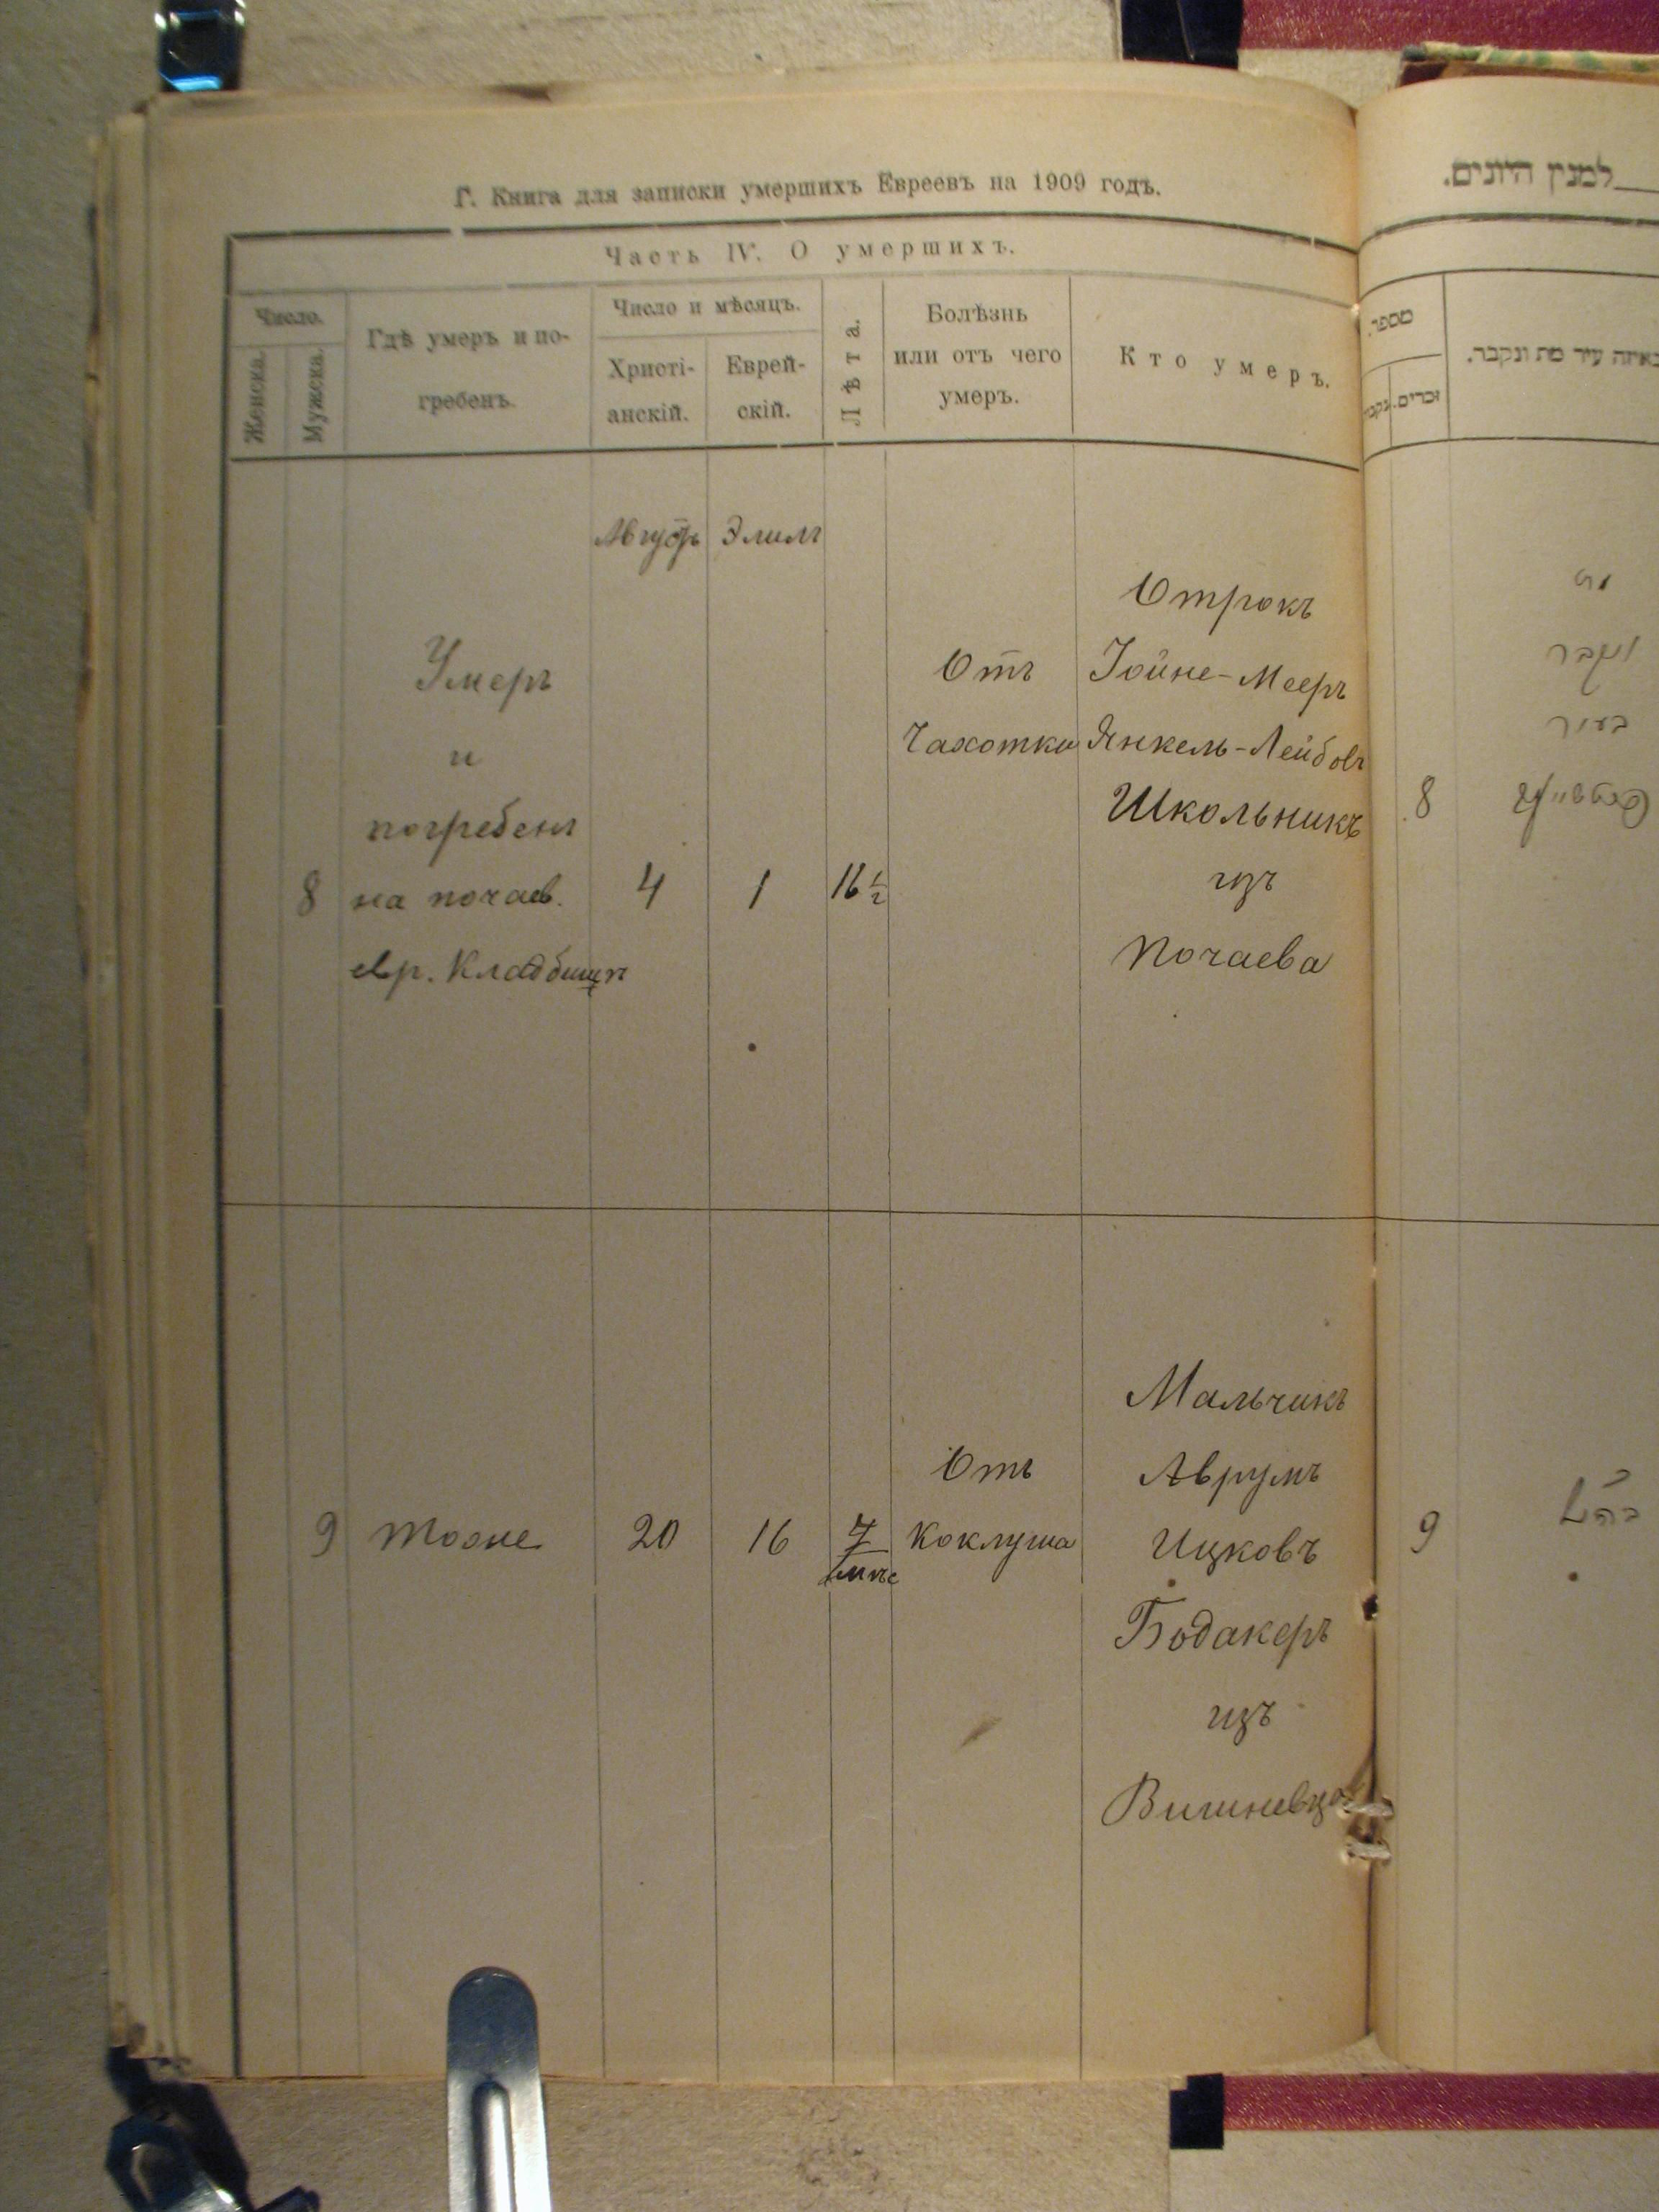 Г. Книга для записки умершихъ Евреевъ на 1909 годъ.
Часть IV. О умершихъ.
Число.
Женска.
Мужска.
Гдѣ умеръ и по-
гребенъ.
Число и мѣсяцъ.
Христі-
анскій.
Еврей-
скій.
Лѣта.
Болѣзнь
или отъ чего
умеръ.
Кто умеръ.
Августъ
8
Умеръ
и
погребенъ
на почаев.
евр. Кладбищѣ
4
1
16 1/2
Отъ
Чахотки
Отрокъ
Іойне-Мееръ
Янкель-Лейбовъ
Школьникъ
изъ
Почаева
9
тоже
20
16
7
мѣс
Отъ
коклуша
Мальчикъ
Аврумъ
Ицковъ
Бодакеръ
изъ
Вишневца
למנין היונים.
מספר.
זכרים.
באיזה עיר מת ונקבר.
8
ונקבר
בעיר
9